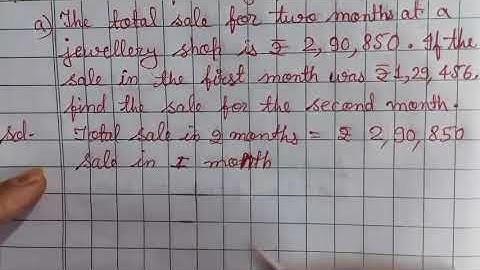 a) The total sale for two months at a
jewellery shop is ₹ 2,90,850. If the
sale in the first month was ₹1,29,456.
find the sale for the second month.
Sol- Total sale in 2 months = ₹ 2,90,850
Sale in I month